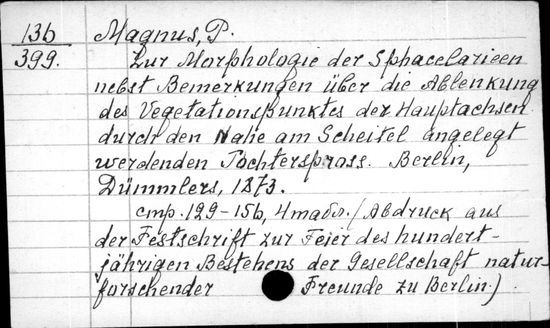 136
399.
Magnus, P.
Zur Morphologie der Sphacelarieen
nebst Bemerkungen über die Ablenkung
des Vegetationspunktes der Hauptachsen
durch den Nahe am Scheitel angelegt
werdenden Tochterspross. Berlin,
Dümmlers, 1873.
стр. 129-156, 4 табл. / Abdruck aus
der Festschrift zur Feier des hundert-
jährigen Bestehens der Gesellschaft natur-
forschender Freunde zu Berlin.)